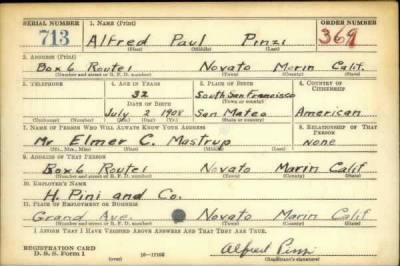 SERIAL NUMBER 1. NAME (Print) ORDER NUMBER
713 Alfred Paul Pinzi 369
(First) (Middle) (Last)
2. ADDRESS (Print)
Box 6 Route 1 Novato Marin Calif.
(Number and street or R. F. D. number) (Town) (County) (State)
3. TELEPHONE 4. AGE IN YEARS 5. PLACE OF BIRTH 6. COUNTRY OF CITIZENSHIP
32 South San Francisco
(Town or county)
DATE OF BIRTH
July 2 1908 San Mateo American
(Mo.) (Day) (Yr.) (State or country)
7. NAME OF PERSON WHO WILL ALWAYS KNOW YOUR ADDRESS 8. RELATIONSHIP OF THAT PERSON
Mr Elmer C. Mastrup none
(Mr., Mrs., Miss) (First) (Middle) (Last)
9. ADDRESS OF THAT PERSON
Box 6 Route 1 Novato Marin Calif
(Number and street or R. F. D. number) (Town) (County) (State)
10. EMPLOYER'S NAME
H. Pini and Co.
11. PLACE OF EMPLOYMENT OR BUSINESS
Grand Ave. Novato Marin Calif
(Number and street or R. F. D. number) (Town) (County) (State)
I AFFIRM THAT I HAVE VERIFIED ABOVE ANSWERS AND THAT THEY ARE TRUE.
REGISTRATION CARD
D. S. S. Form 1 (over) Alfred Pinzi
(Registrant's signature)